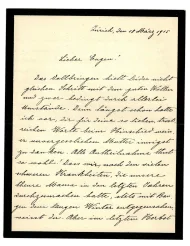 Zürich, den 18 März 1915
Lieber Eugen!
Das Vollbringen hielt leider nicht
gleichen Schritt mit dem guten Willen
und zwar bedingt durch allerlei
Umstände. Denn längst schon hatte
ich vor, dir für deine so lieben, trost-
reichen Worte beim Hinschied unse-
rer unvergesslichen Mutter innigst
zu danken. Alle Anteilnahme that
so wohl! Dass wir nach den vielen
schweren Krankheiten, die unsere
theure Mama in den letzten Jahren
durchgemacht hatte, stets mit Ban-
gen dem Winter entgegensahen,
weisst du. Aber im letzten Herbst